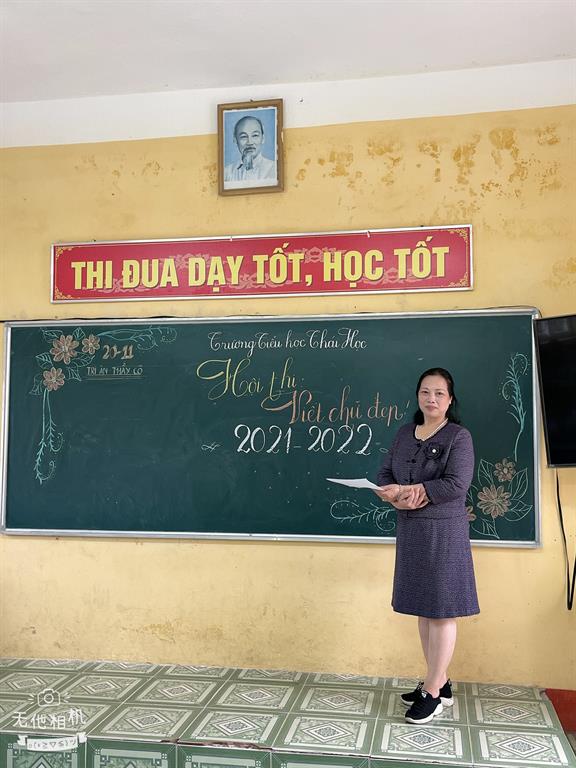 THI ĐUA DẠY TỐT, HỌC TỐT
20-11
TRI ÂN THẦY CÔ
Trường Tiểu học Thái Học
Hội thi
Viết chữ đẹp
2021-2022
无他相机